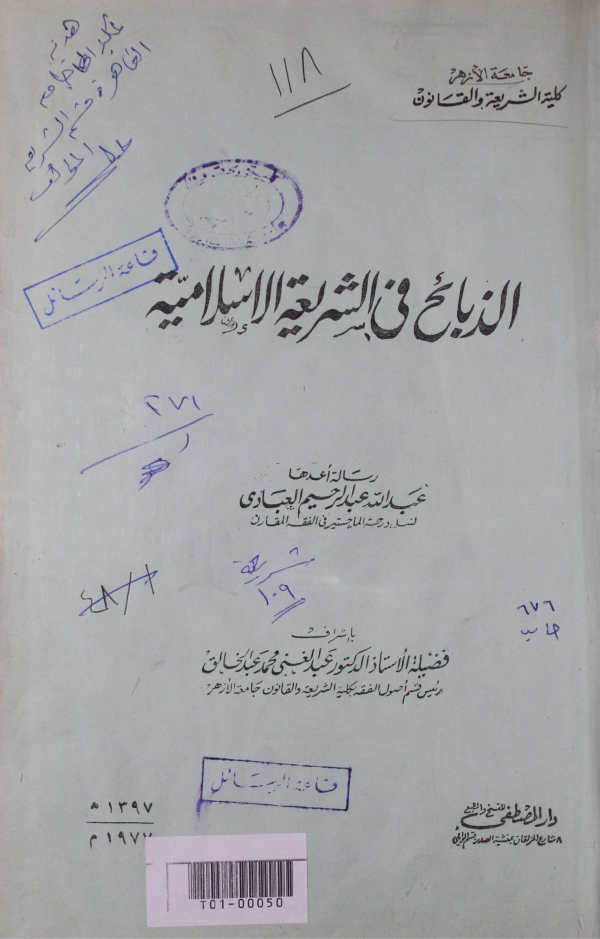 جامعة الأزهر
كلية الشريعة والقانون
١١٨
هدية
القاهرة قسم الشريعة
المؤلف
قاعة الرسائل
الذبائح فى الشريعة الإسلامية
٢٧١
رسالة أعدها
عبد الله عبد الرحيم العبادى
لنيل درجة الماجستير فى الفقه المقارن
شريعة
١٠٩
٤٨/١
٦٧٦
بإشراف
فضيلة الاستاذ الدكتور عبد الغنى محمد عبد الخالق
رئيس قسم أصول الفقه بكلية الشريعة والقانون جامعة الأزهر
قاعة الرسائل
١٣٩٧ ھ
١٩٧٧ م
دار المصطفى للنسخ والطبع
T01-00050